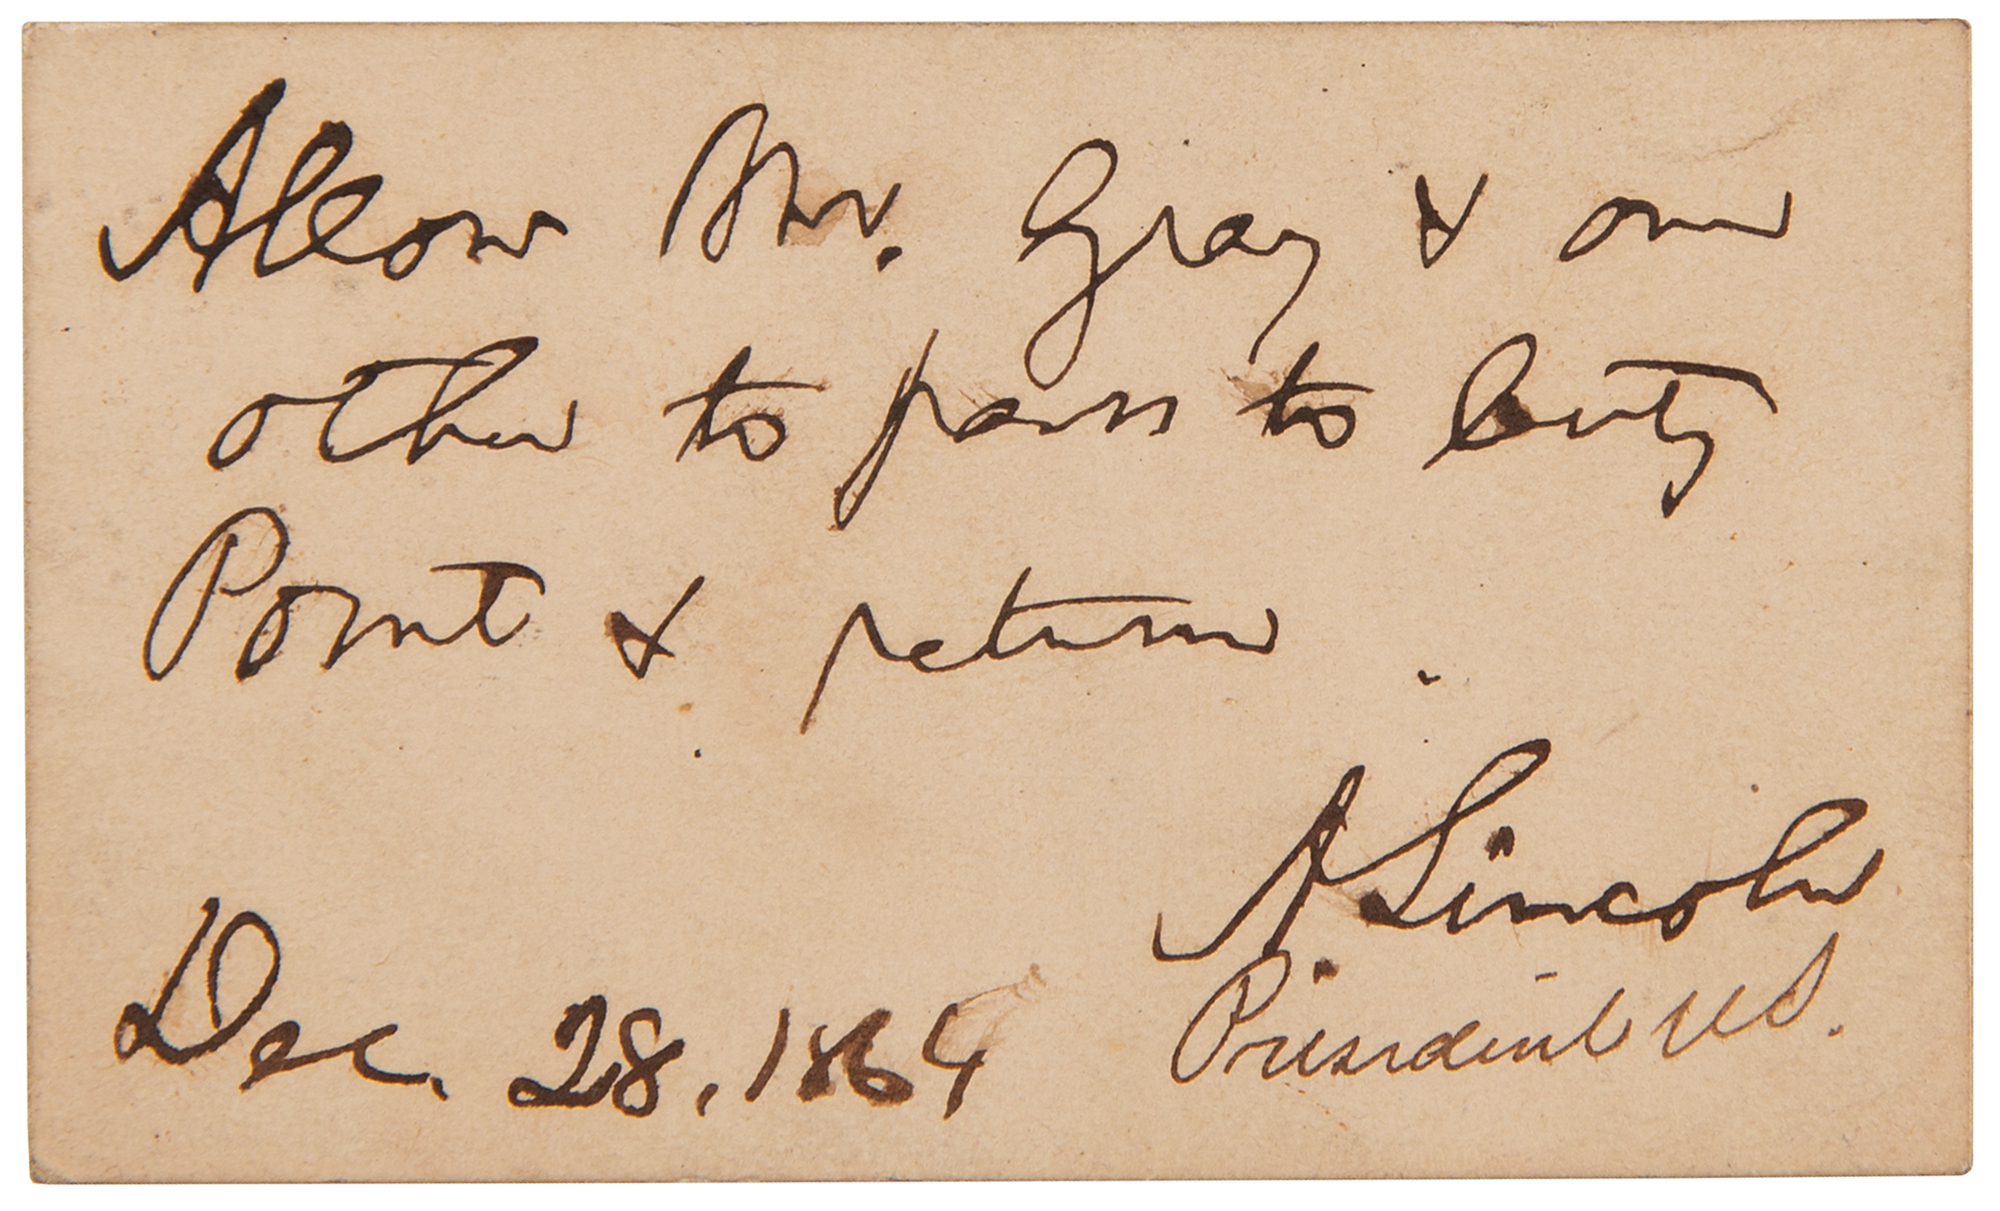 Allow Mr. Gray & one
other to pass to City
Point & return.
A Lincoln
President US.
Dec. 28, 1864